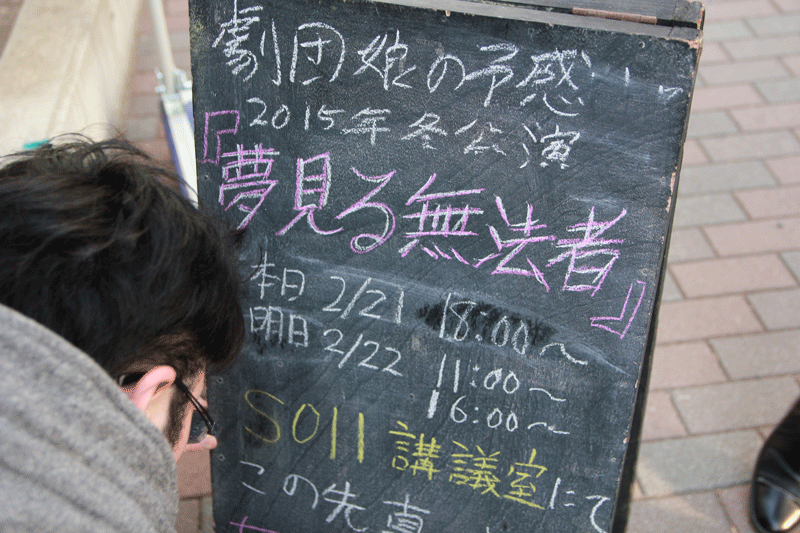 劇団娘の予感
2015年 冬公演
『夢見る無法者』
本日 2/21 18:00～
明日 2/22 11:00～
16:00～
S011 講議室にて
この先真